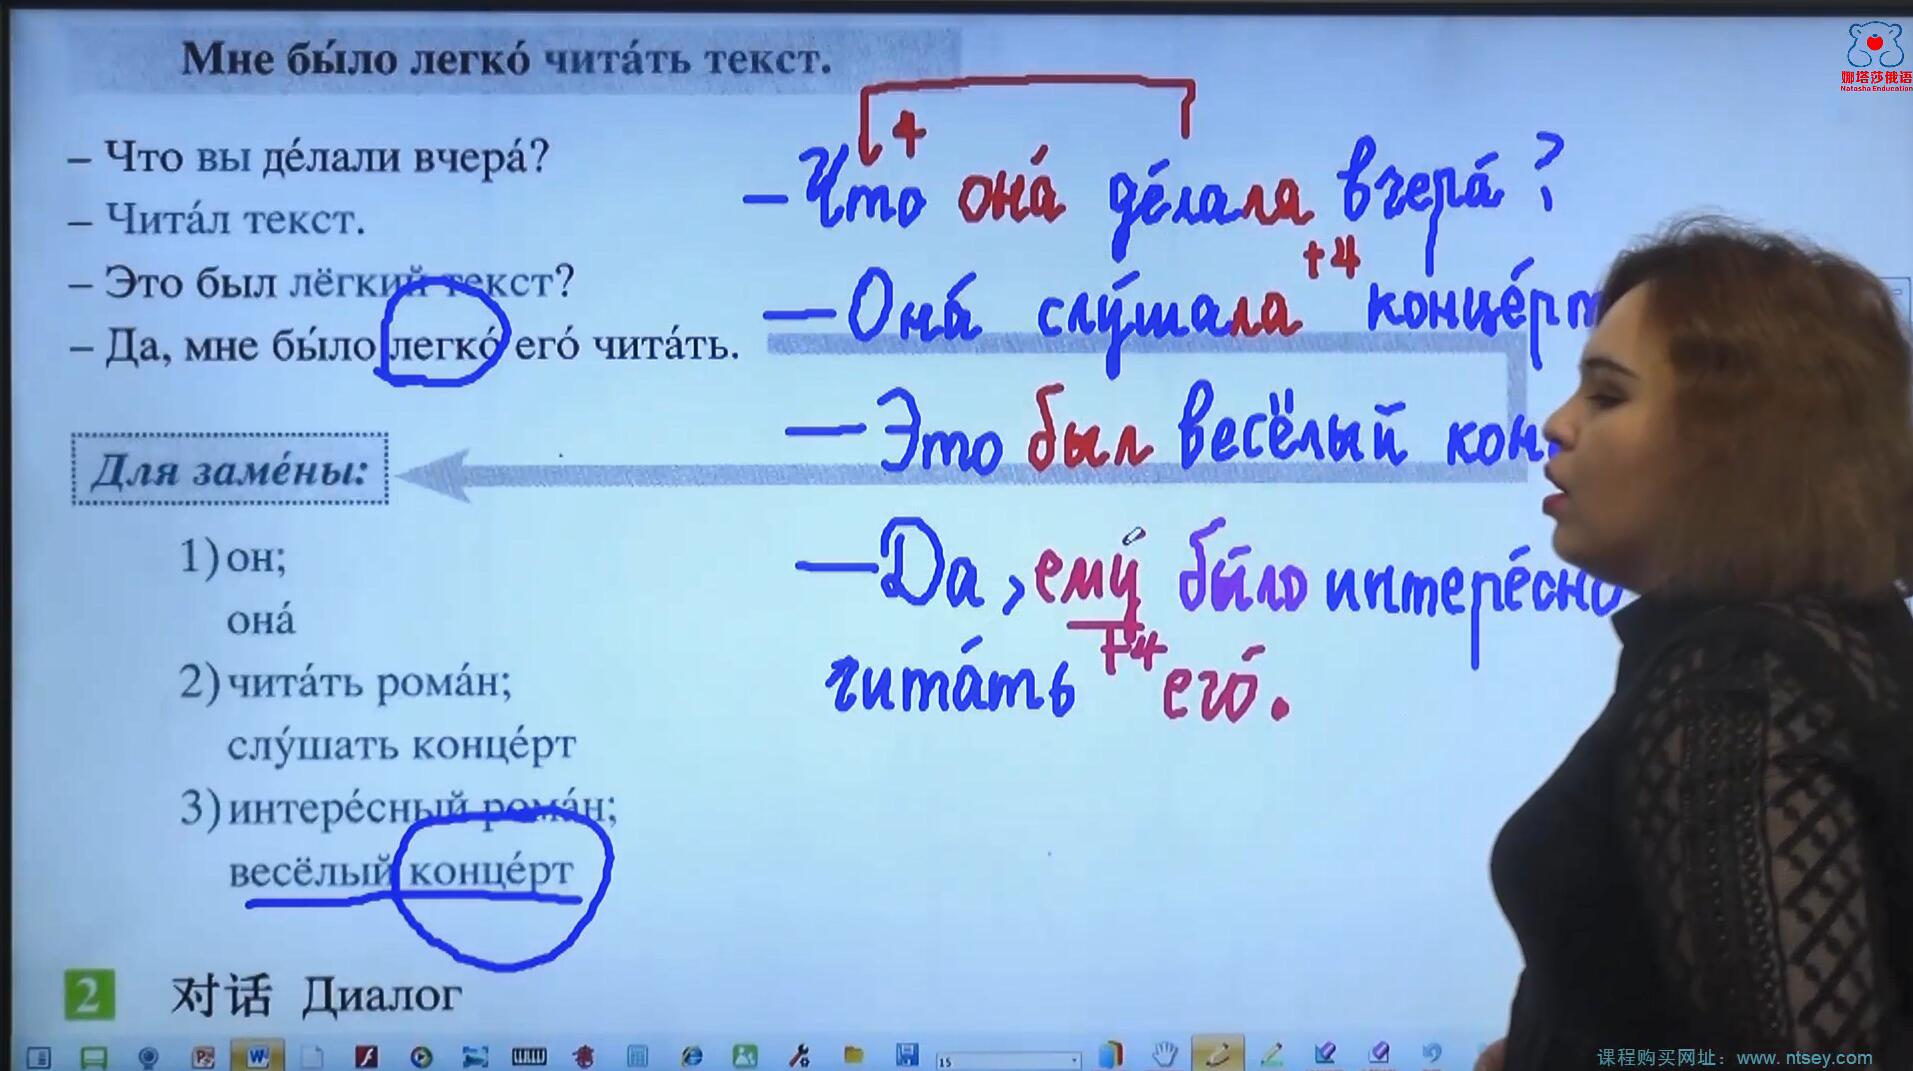 Мне бы́ло легко́ чита́ть текст.
– Что вы де́лали вчера́?
– Чита́л текст.
– Это был лёгкий текст?
– Да, мне бы́ло легко́ его́ чита́ть.
Для заме́ны:
1) он;
она́
2) чита́ть рома́н;
слу́шать конце́рт
3) интере́сный рома́н;
весёлый конце́рт
2 对话 Диалог
4
– Что она́ де́лала вчера́?
+4
– Она́ слу́шала конце́рт
– Это был весёлый кон
– Да, ему́ бы́ло интере́сно
+4
чита́ть его́.
娜塔莎俄语
Natasha Enducation
15
课程购买网址：www.ntsey.com